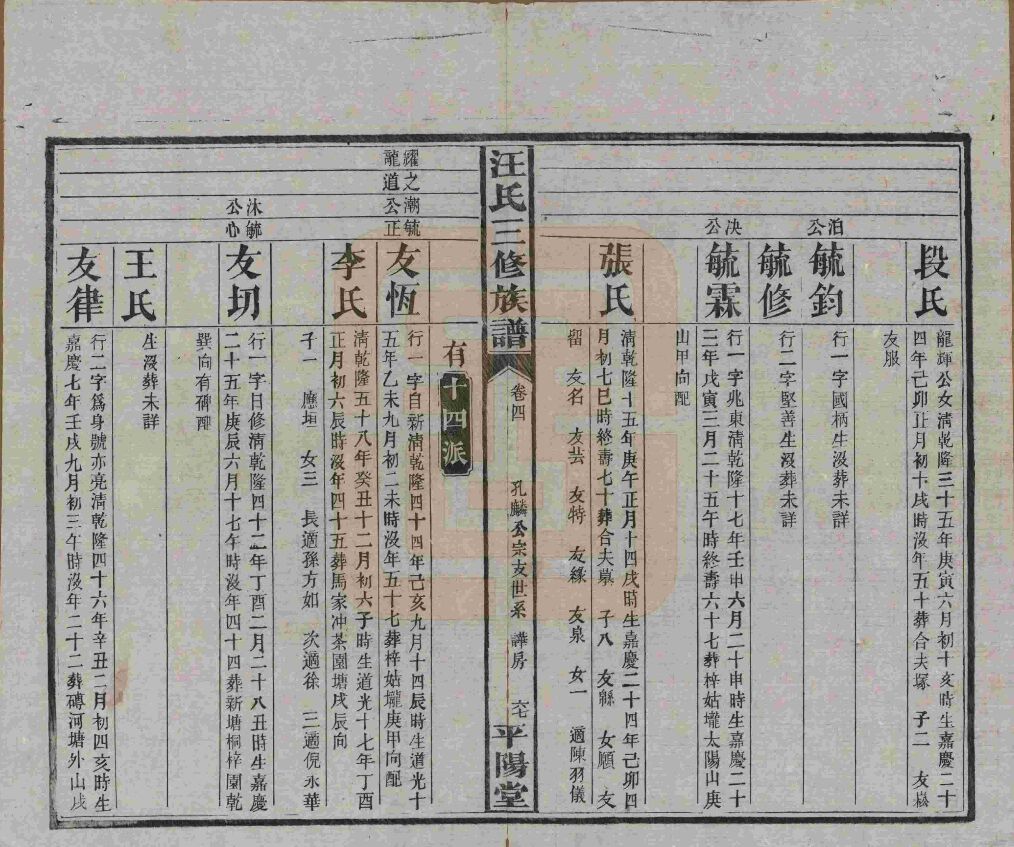 段氏
龍輝公女清乾隆三十五年庚寅六月初十亥時生嘉慶二十
四年己卯正月初十戌時沒年五十葬合夫塚 子二 友崧
友服
泊公
毓鈞
行一字國柄生沒葬未詳
毓修
行二字堅善生沒葬未詳
決公
毓霖
行一字兆東清乾隆十七年壬申六月二十申時生嘉慶二十
三年戊寅三月二十五午時終壽六十七葬梓姑壠太陽山庚
山甲向配
張氏
清乾隆十五年庚午正月十四戌時生嘉慶二十四年己卯四
月初七巳時終壽七十葬合夫墓 子八 友縣 友願 友
留 友名 友芸 友特 友緣 友泉 女一 適陳羽儀
汪氏三修族譜
卷四
孔麟公宗支世系
譁房
平陽堂
有十四派
耀之潮毓
龍道公正
友恆
行一字自新清乾隆四十四年己亥九月十四辰時生道光十
五年乙未九月初二未時沒年五十七葬梓姑壠庚甲向配
李氏
清乾隆五十八年癸丑十二月初六子時生道光十七年丁酉
正月初六辰時沒年四十五葬馬家冲茶園塘戌辰向
子一 應垣 女三 長適孫方如 次適徐 三適倪永華
沐毓
公心
友切
行一字日修清乾隆四十二年丁酉二月二十八丑時生嘉慶
二十五年庚辰六月十七午時沒年四十四葬新塘桐梓園乾
巽向有碑配
王氏
生沒葬未詳
友律
行二字爲身號亦亮清乾隆四十六年辛丑二月初四亥時生
嘉慶七年壬戌九月初三午時沒年二十二葬磚河塘外山戌